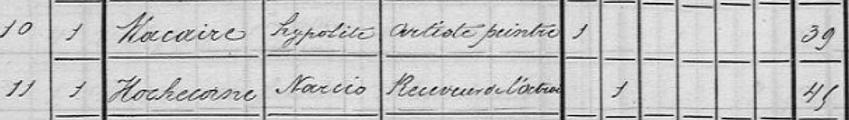 10 1 Macaire hypolite artiste peintre 1 39
11 1 Hochecorne Narcis Receveur de l'octroi 1 45